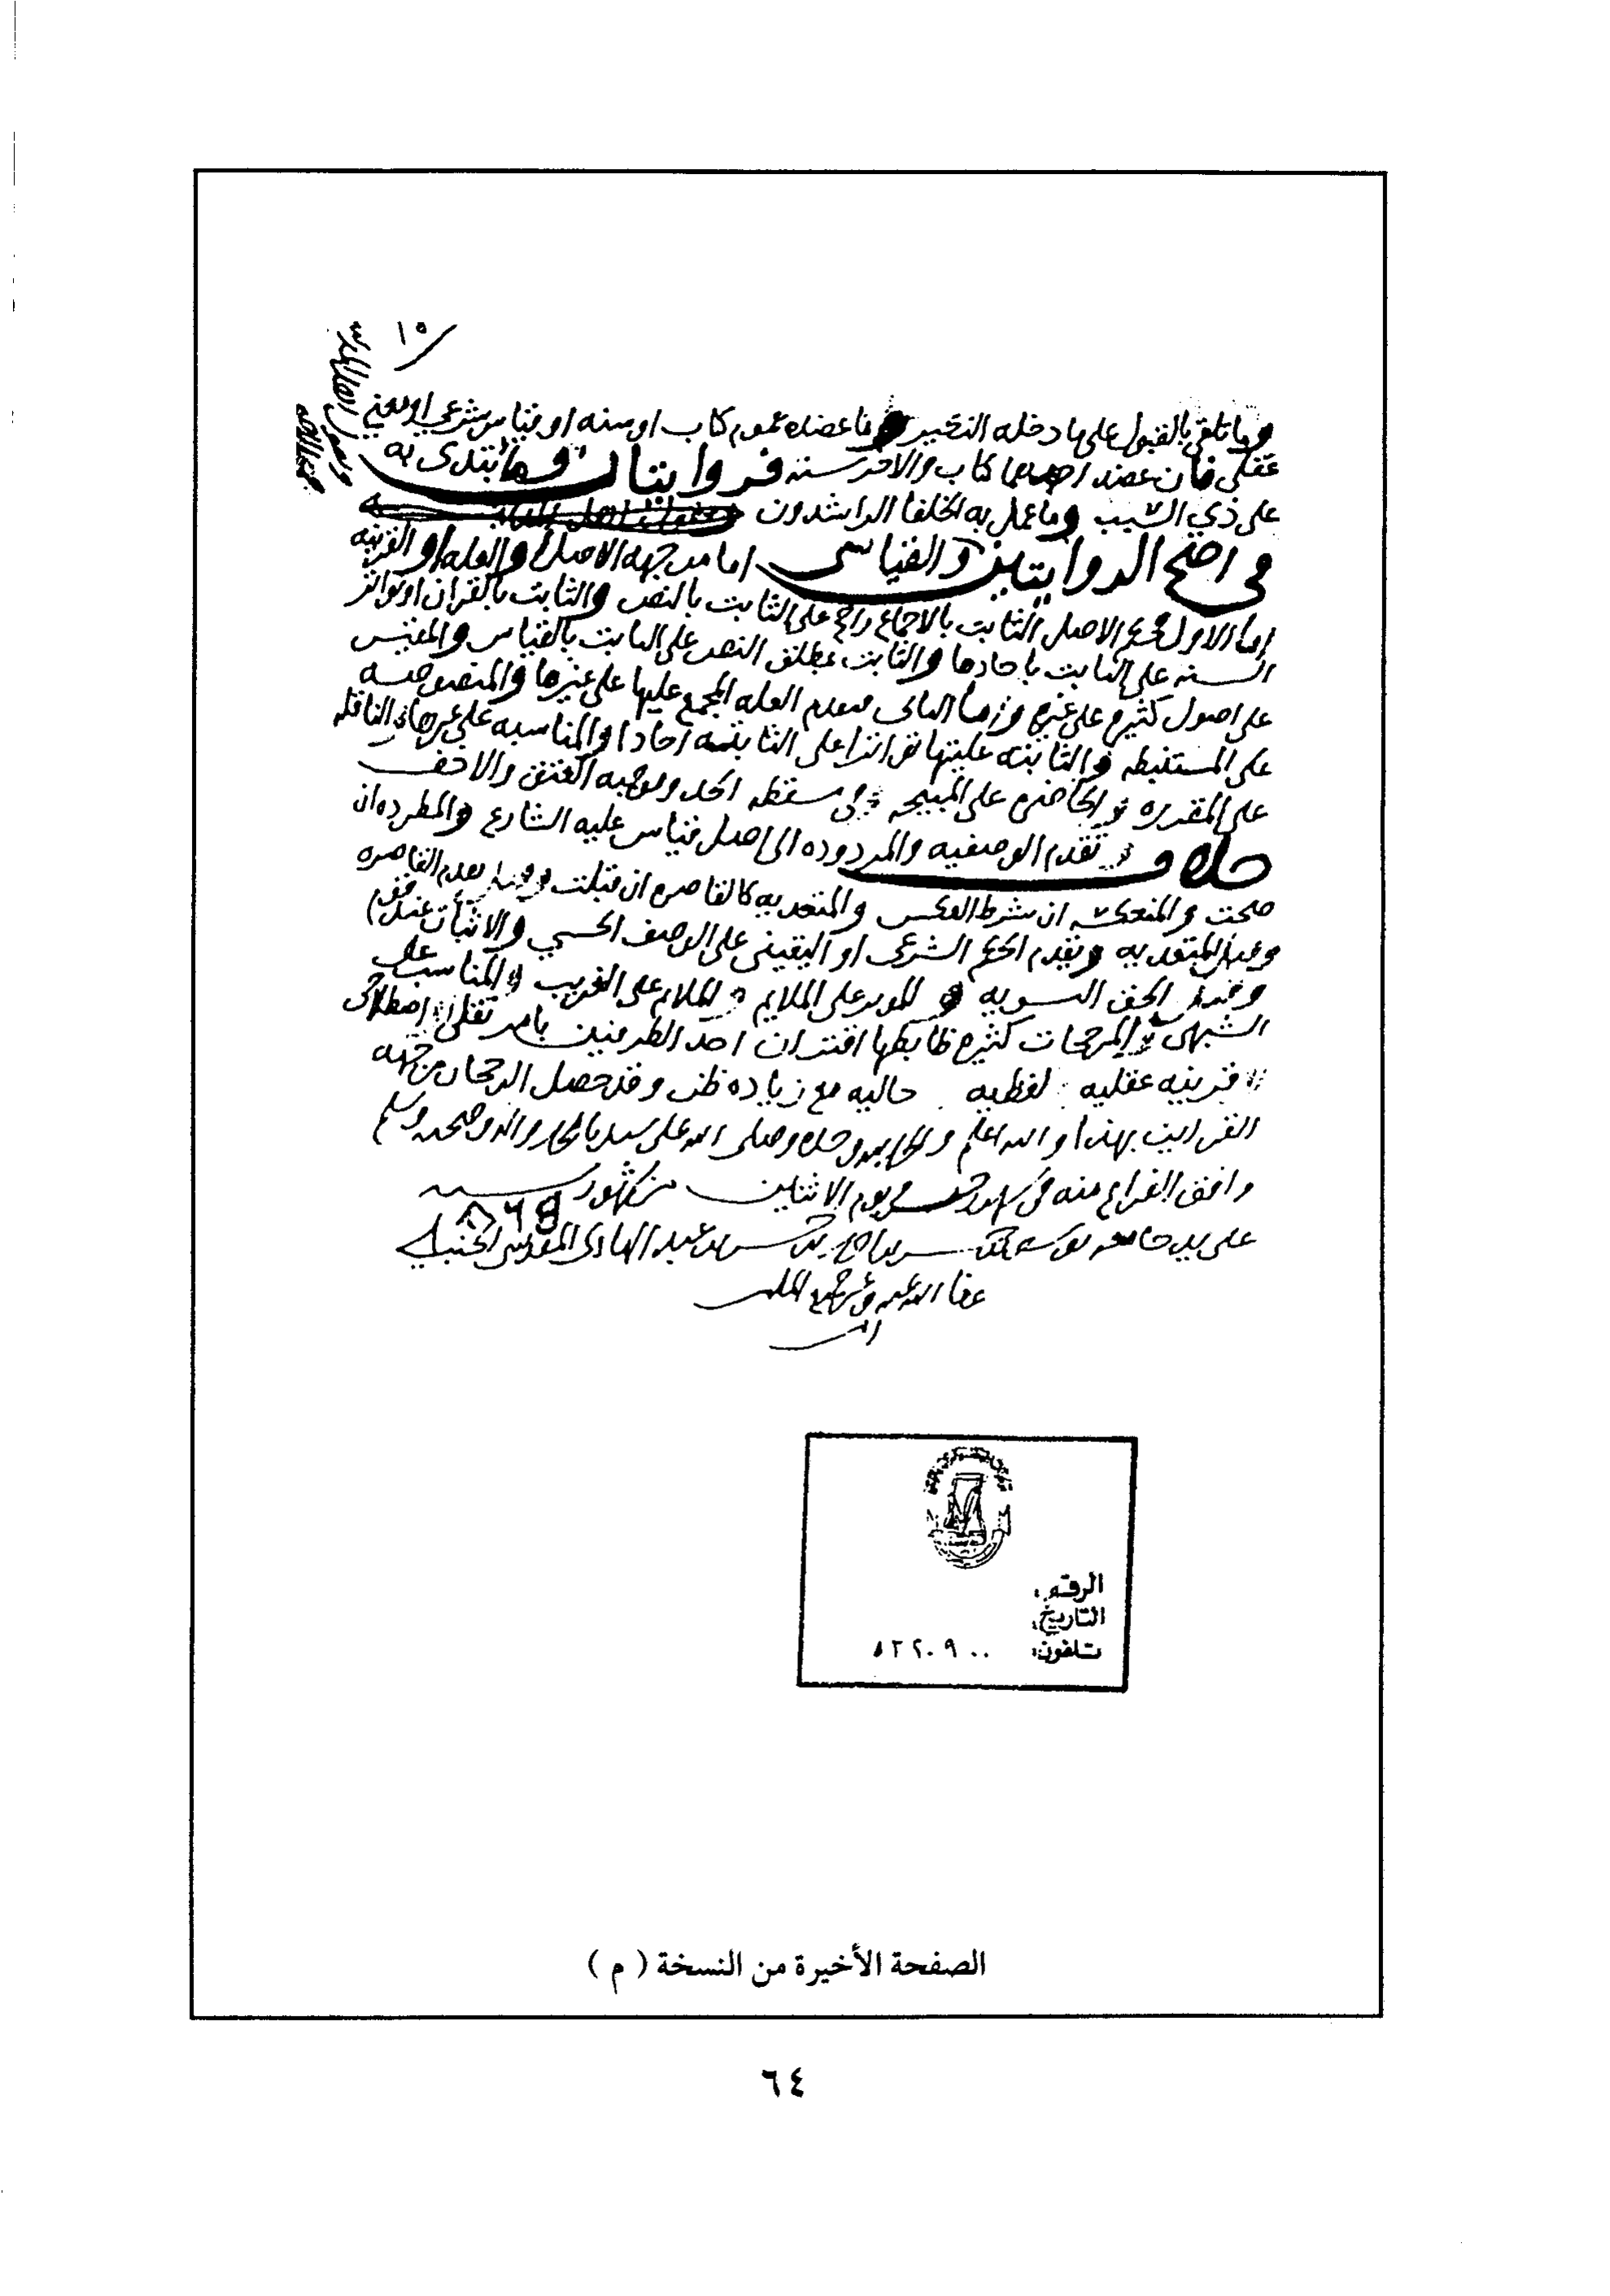 ١٥
وما تلقي بالقبول على ما دخله النكير وما عضده عموم كتاب او سنه او قياس شرعي او معنى
عقلي فان عضد احدهما كتاب والاخر سنه فروايتان وما ابتدى به
على ذي السبب وما عمل به الخلفا الراشدون
في اصح الروايتين والقياسي اما من جهه الاصل او العله او القرينه
اما الاول فحكم الاصل الثابت بالاجماع راجح على الثابت بالنص والثابت بالقران او تواتر
السنه على الثابت باحادها والثابت بمطلق النص على الثابت بالقياس والمقيس
على اصول كثيره على غيره واما الثاني فتقدم العله المجمع عليها على غيرها والمنصوصه
على المستنبطه والثابته عليتها تواترا على الثابته احادا والمناسبه على غيرها والناقله
على المقرره والحاضره على المبيحه وفي مسقطه الحد وموجبه العتق والاخف
خلاف تقدم الوصفيه والمردوده الى اصل قياس عليه الشارع والمطرده ان
صحت والمنعكسه ان شرط العكس والمتعديه كالقاصره ان قبلت وقيل تقدم القاصره
وقيل المتعديه ويقدم الحكم الشرعي او اليقيني على الوصف الحسي والاثباتي عند قوم
وقيل الحق التسويه والموثر على الملايم والملايم على الغريب والمناسب على
الشبهى والمرجحات كثيره ضابطها اقتران احد الطرفين بامر نقلي اصطلاحي
قرينه عقليه لفظيه حاليه مع زياده ظن وقد حصل الرجحان من جهه
القراين بهذا والله اعلم والحمد لله وحده وصلى الله على سيدنا محمد واله وصحبه وسلم
وافق الفراغ منه في يوم الاثنين من شهور سنه
على يد بن عبد الهادي المقدسي الحنبلي
عفا الله عنه وعن جميع المسلمين
الرقم:
التاريخ:
تلفون: ٥٢٢٠٩٠٠
الصفحة الأخيرة من النسخة ( م )
٦٤